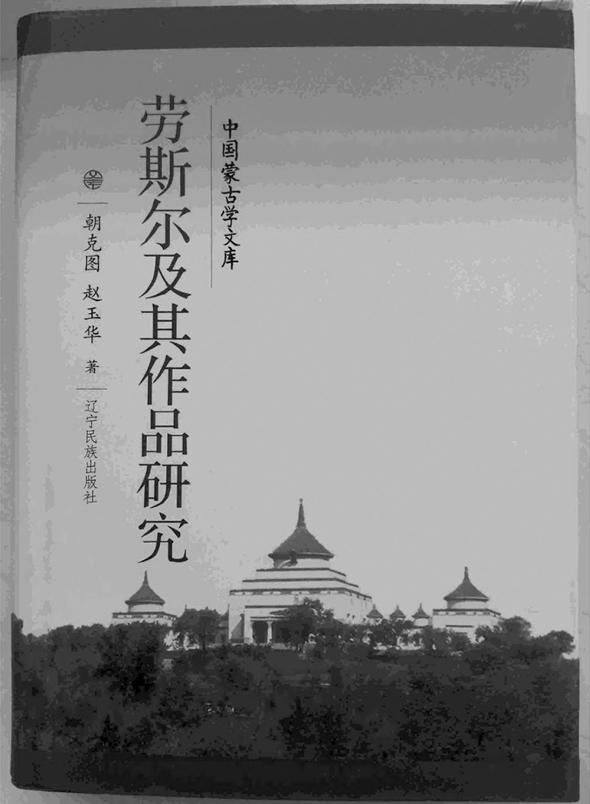 中国蒙古学文库
劳斯尔及其作品研究
朝克图 赵玉华 著
辽宁民族出版社